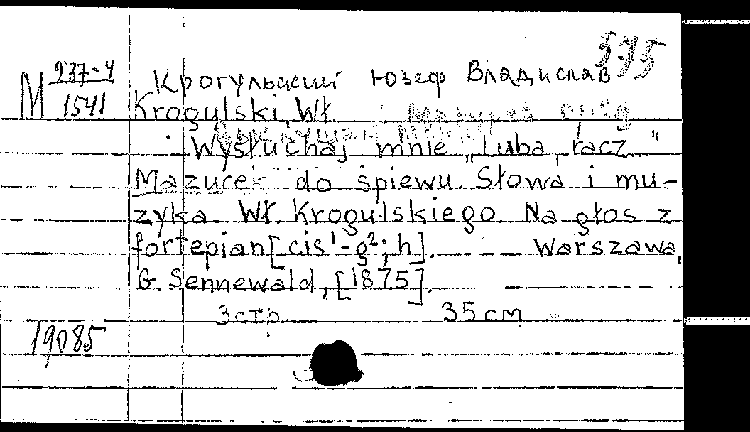 575
M 937-4
1541
Крогульский Юзеф Владислав
Krogulski, Wł.
"Wysłuchaj mnie luba, racz"
Mazurek do śpiewu. Słowa i mu-
zyka Wł. Krogulskiego. Na głos z
fortepian [cis¹-g²; h]. Warszawa,
G. Sennewald, [1875].
3 стр. 35 cm
19085